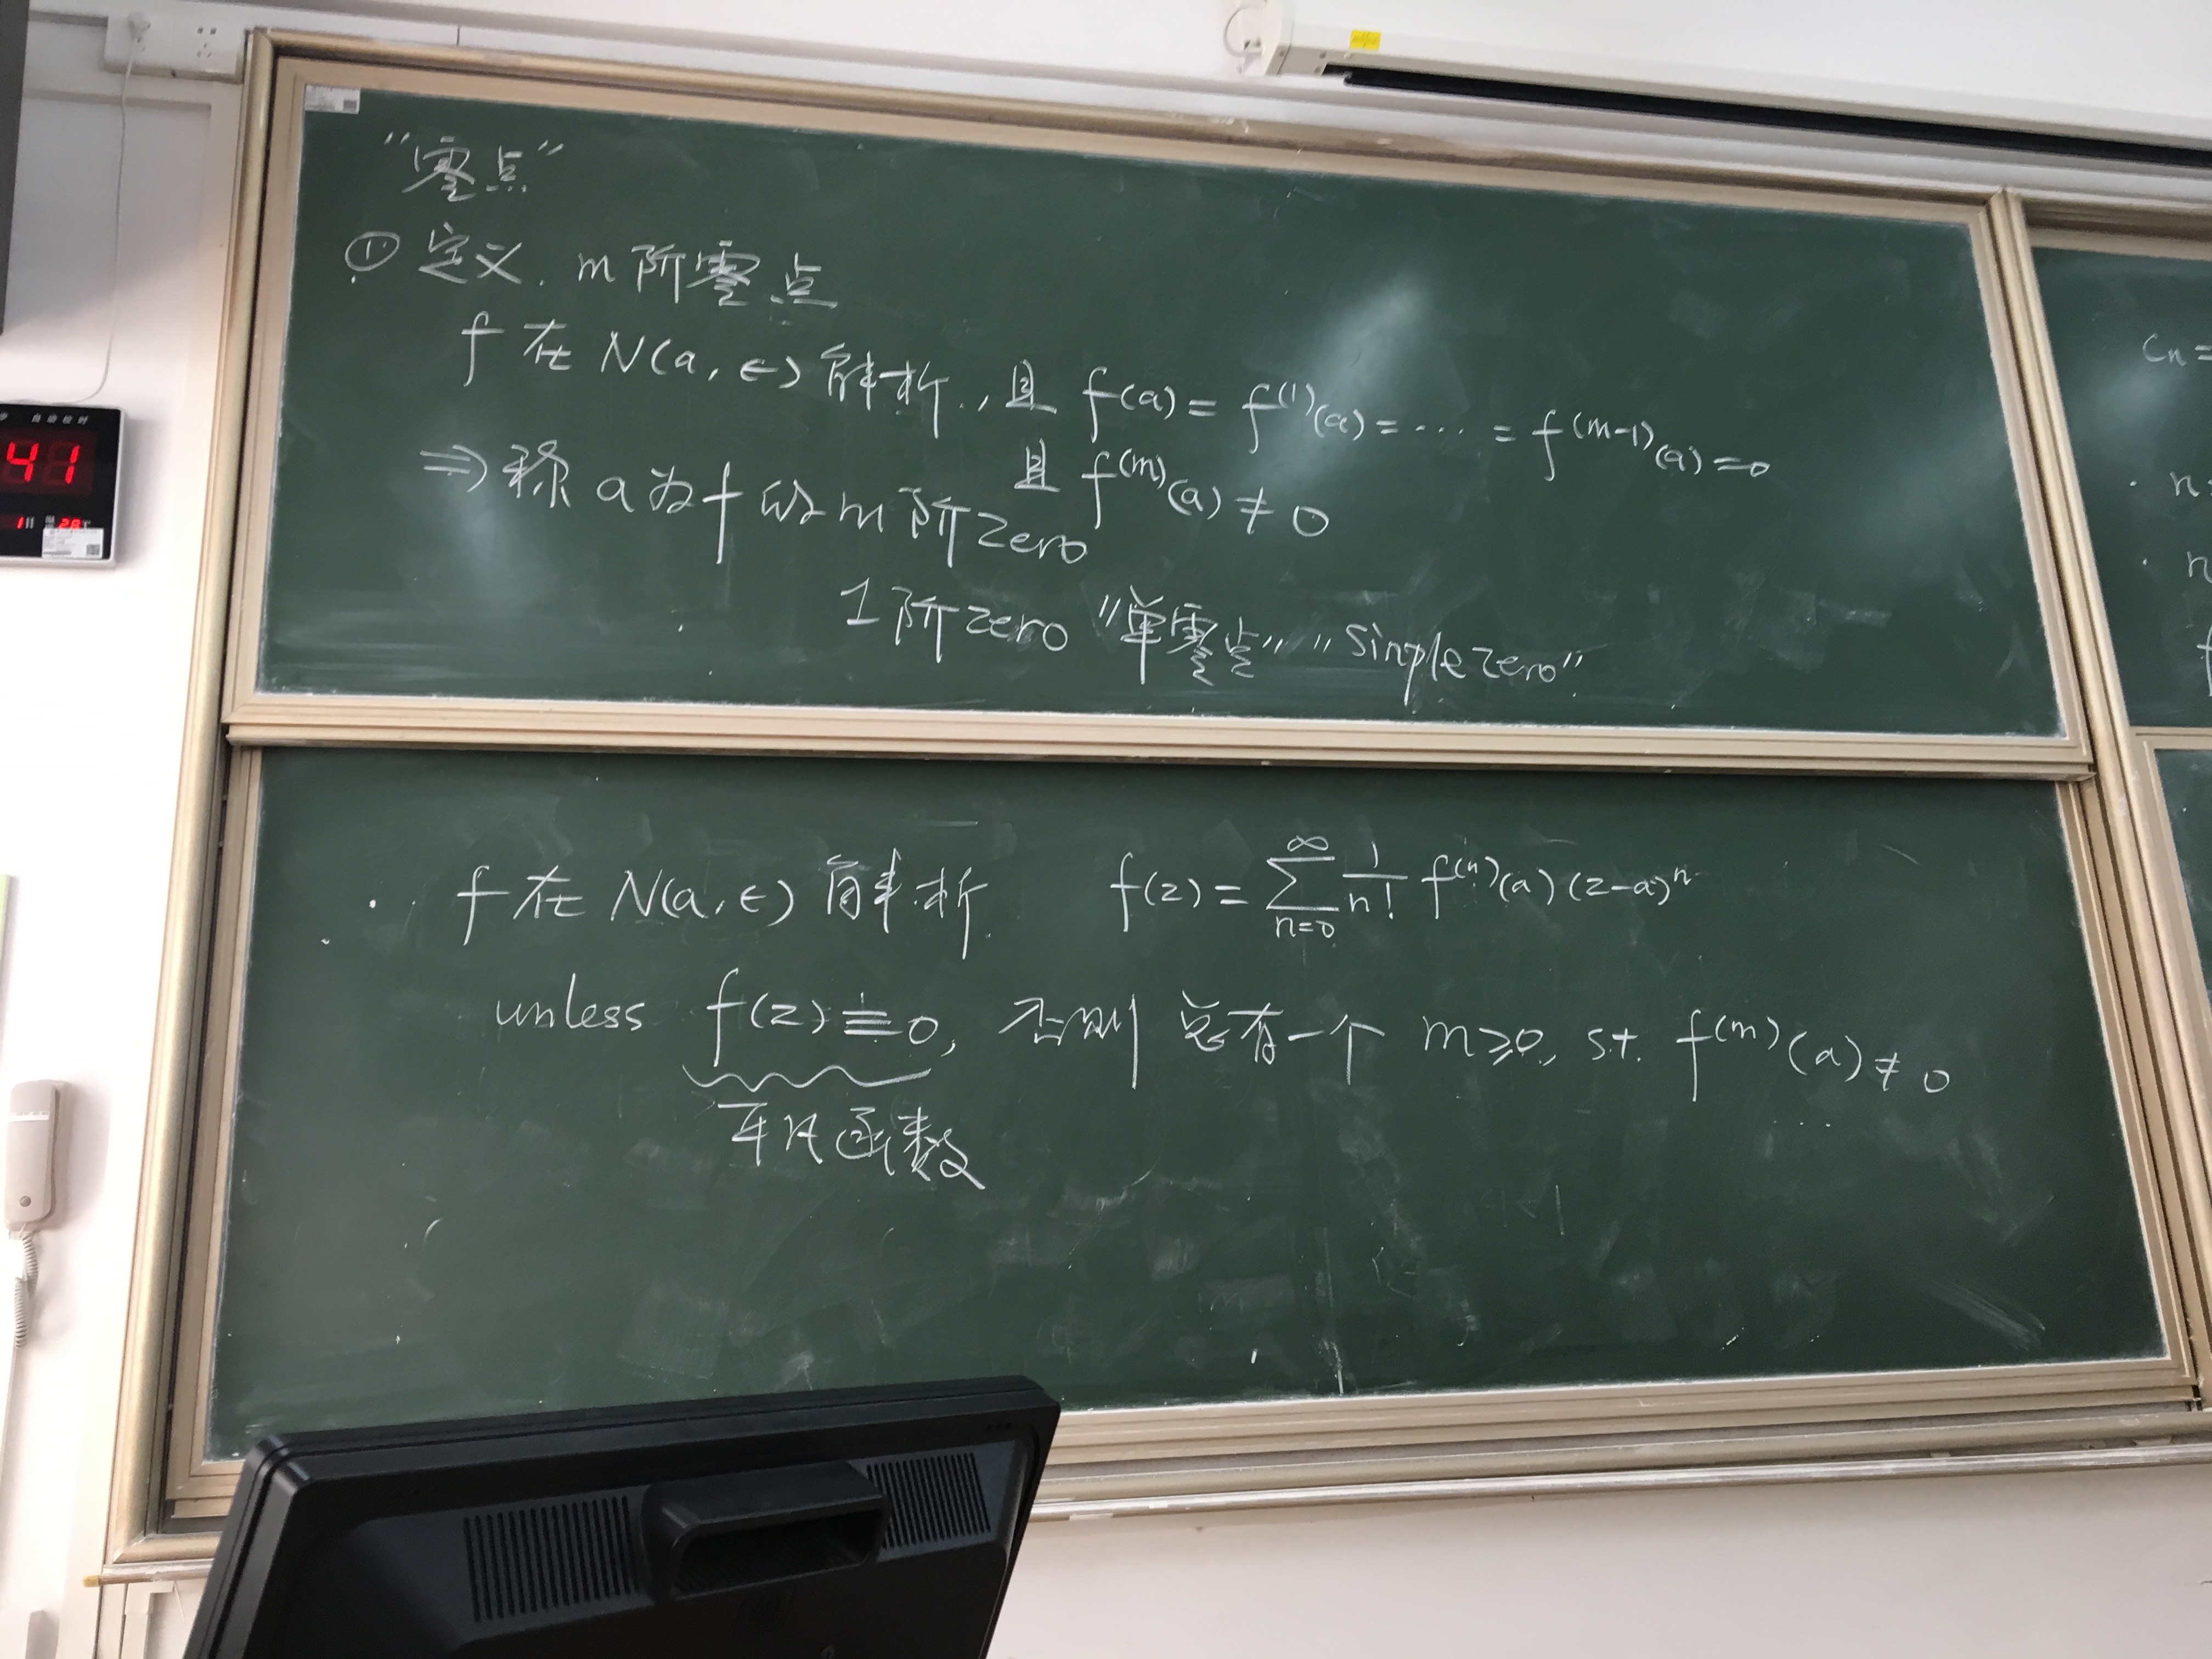 “零点”
① 定义. m阶零点
f 在 N(a, ϵ) 解析, 且 f(a) = f⁽¹⁾(a) = ⋯ = f⁽ᵐ⁻¹⁾(a) = 0
且 f⁽ᵐ⁾(a) ≠ 0
⇒ 称 a 为 f 的 m 阶 zero
1阶 zero “单零点” “simple zero”
· f 在 N(a, ϵ) 解析 f(z) = ∑_{n=0}^{∞} 1/n! f⁽ⁿ⁾(a) (z-a)ⁿ
unless f(z) ≡ 0, 否则 总有一个 m ≥ 0, s.t. f⁽ᵐ⁾(a) ≠ 0
平凡函数
Cn =
· n
· n
41
28